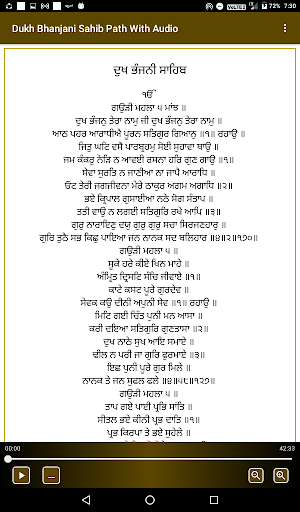 7:30
Dukh Bhanjani Sahib Path With Audio
ਦੁਖ ਭੰਜਨੀ ਸਾਹਿਬ
ੴ
ਗਉੜੀ ਮਹਲਾ ੫ ਮਾਂਝ ॥
ਦੁਖ ਭੰਜਨੁ ਤੇਰਾ ਨਾਮੁ ਜੀ ਦੁਖ ਭੰਜਨੁ ਤੇਰਾ ਨਾਮੁ ॥
ਆਠ ਪਹਰ ਆਰਾਧੀਐ ਪੂਰਨ ਸਤਿਗੁਰ ਗਿਆਨੁ ॥੧॥ ਰਹਾਉ ॥
ਜਿਤੁ ਘਟਿ ਵਸੈ ਪਾਰਬ੍ਰਹਮੁ ਸੋਈ ਸੁਹਾਵਾ ਥਾਉ ॥
ਜਮ ਕੰਕਰੁ ਨੇੜਿ ਨ ਆਵਈ ਰਸਨਾ ਹਰਿ ਗੁਣ ਗਾਉ ॥੧॥
ਸੇਵਾ ਸੁਰਤਿ ਨ ਜਾਣੀਆ ਨਾ ਜਾਪੈ ਆਰਾਧਿ ॥
ਓਟ ਤੇਰੀ ਜਗਜੀਵਨਾ ਮੇਰੇ ਠਾਕੁਰ ਅਗਮ ਅਗਾਧਿ ॥੨॥
ਭਏ ਕ੍ਰਿਪਾਲ ਗੁਸਾਈਆ ਨਠੇ ਸੋਗ ਸੰਤਾਪ ॥
ਤਤੀ ਵਾਉ ਨ ਲਗਈ ਸਤਿਗੁਰਿ ਰਖੇ ਆਪਿ ॥੩॥
ਗੁਰੁ ਨਾਰਾਇਣੁ ਦਯੁ ਗੁਰੁ ਗੁਰੁ ਸਚਾ ਸਿਰਜਣਹਾਰੁ ॥
ਗੁਰਿ ਤੁਠੈ ਸਭ ਕਿਛੁ ਪਾਇਆ ਜਨ ਨਾਨਕ ਸਦ ਬਲਿਹਾਰ ॥੪॥੨॥੧੭੦॥
ਗਉੜੀ ਮਹਲਾ ੫ ॥
ਸੂਕੇ ਹਰੇ ਕੀਏ ਖਿਨ ਮਾਹੇ ॥
ਅੰਮ੍ਰਿਤ ਦ੍ਰਿਸਟਿ ਸੰਚਿ ਜੀਵਾਏ ॥੧॥
ਕਾਟੇ ਕਸਟ ਪੂਰੇ ਗੁਰਦੇਵ ॥
ਸੇਵਕ ਕਉ ਦੀਨੀ ਅਪੁਨੀ ਸੇਵ ॥੧॥ ਰਹਾਉ ॥
ਮਿਟਿ ਗਈ ਚਿੰਤ ਪੁਨੀ ਮਨ ਆਸਾ ॥
ਕਰੀ ਦਇਆ ਸਤਿਗੁਰਿ ਗੁਣਤਾਸਾ ॥੨॥
ਦੁਖ ਨਾਠੇ ਸੁਖ ਆਇ ਸਮਾਏ ॥
ਢੀਲ ਨ ਪਰੀ ਜਾ ਗੁਰਿ ਫੁਰਮਾਏ ॥੩॥
ਇਛ ਪੁਨੀ ਪੂਰੇ ਗੁਰ ਮਿਲੇ ॥
ਨਾਨਕ ਤੇ ਜਨ ਸੁਫਲ ਫਲੇ ॥੪॥੫੮॥੧੨੭॥
ਗਉੜੀ ਮਹਲਾ ੫ ॥
ਤਾਪ ਗਏ ਪਾਈ ਪ੍ਰਭਿ ਸਾਂਤਿ ॥
ਸੀਤਲ ਭਏ ਕੀਨੀ ਪ੍ਰਭ ਦਾਤਿ ॥੧॥
ਪ੍ਰਭ ਕਿਰਪਾ ਤੇ ਭਏ ਸੁਹੇਲੇ ॥
00:00 42:33